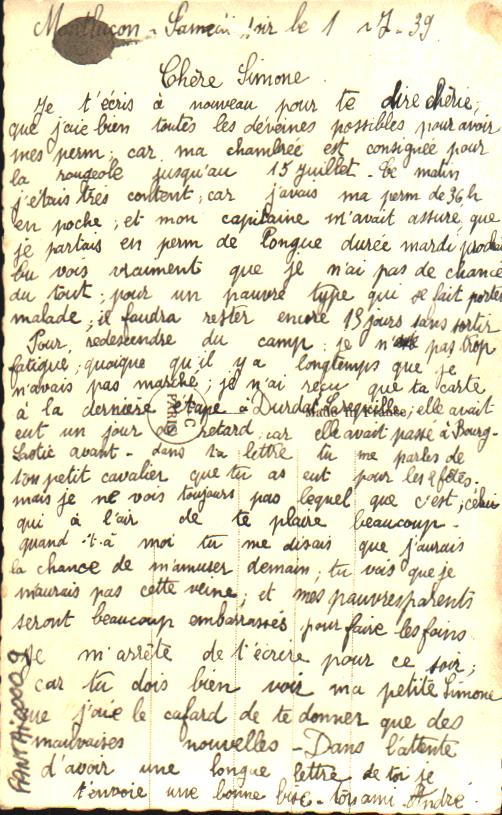 Montluçon - Samedi soir le 1 - 7 - 39
Chère Simone
Je t'écris à nouveau pour te dire chérie,
que j'aie bien toutes les déveines possibles pour avoir
mes perm, car ma chambrée est consignée pour
la rougeole jusqu'au 15 juillet - Ce matin
j'étais très content, car j'avais ma perm de 36h
en poche, et mon capitaine m'avait assuré que
je partais en perm de longue durée mardi prochain
tu vois vraiment que je n'ai pas de chance
du tout, pour un pauvre type qui se fait porter
malade, il faudra rester encore 15 jours sans sortir
Pour redescendre du camp, je n'ai pas trop
fatigué, quoique qu'il y a longtemps que je
n'avais pas marché, je n'ai reçu que ta carte
à la dernière étape à Durdat Larequille, elle avait
eut un jour de retard, car elle avait passé à Bourg-
Lastic avant - dans ta lettre tu me parles de
ton petit cavalier que tu as eut pour les fêtes -
mais je ne vois toujours pas lequel que c'est, celui
qui à l'air de te plaire beaucoup -
quand t-à moi tu me disais que j'aurais
la chance de m'amuser demain, tu vois que je
n'aurais pas cette veine, et mes pauvres parents
seront beaucoup embarrassés pour faire les foins
Je m'arrête de t'écrire pour ce soir,
car tu dois bien voir ma petite Simone
que j'aie le cafard de te donner que des
mauvaises nouvelles - Dans l'attente
d'avoir une longue lettre de toi je
t'envoie une bonne bise - ton ami André
C
PARIS
Made in France
FANTAI00009